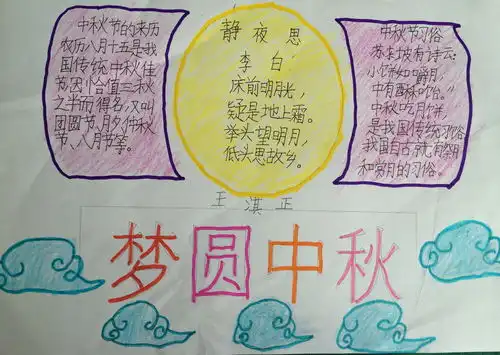 中秋节的来历
农历八月十五是我
国传统中秋佳
节因恰值三秋
之半而得名,又叫
团圆节、月夕仲秋
节、八月节等。
静夜思
李白:
床前明月光,
疑是地上霜。
举头望明月,
低头思故乡。
中秋节习俗
苏东坡有诗云:
小饼如嚼月,
中有酥和饴。"
中秋吃月饼,
是我国传统习俗
我国自古就有祭月
和赏月的习俗。
王淇正
梦圆中秋